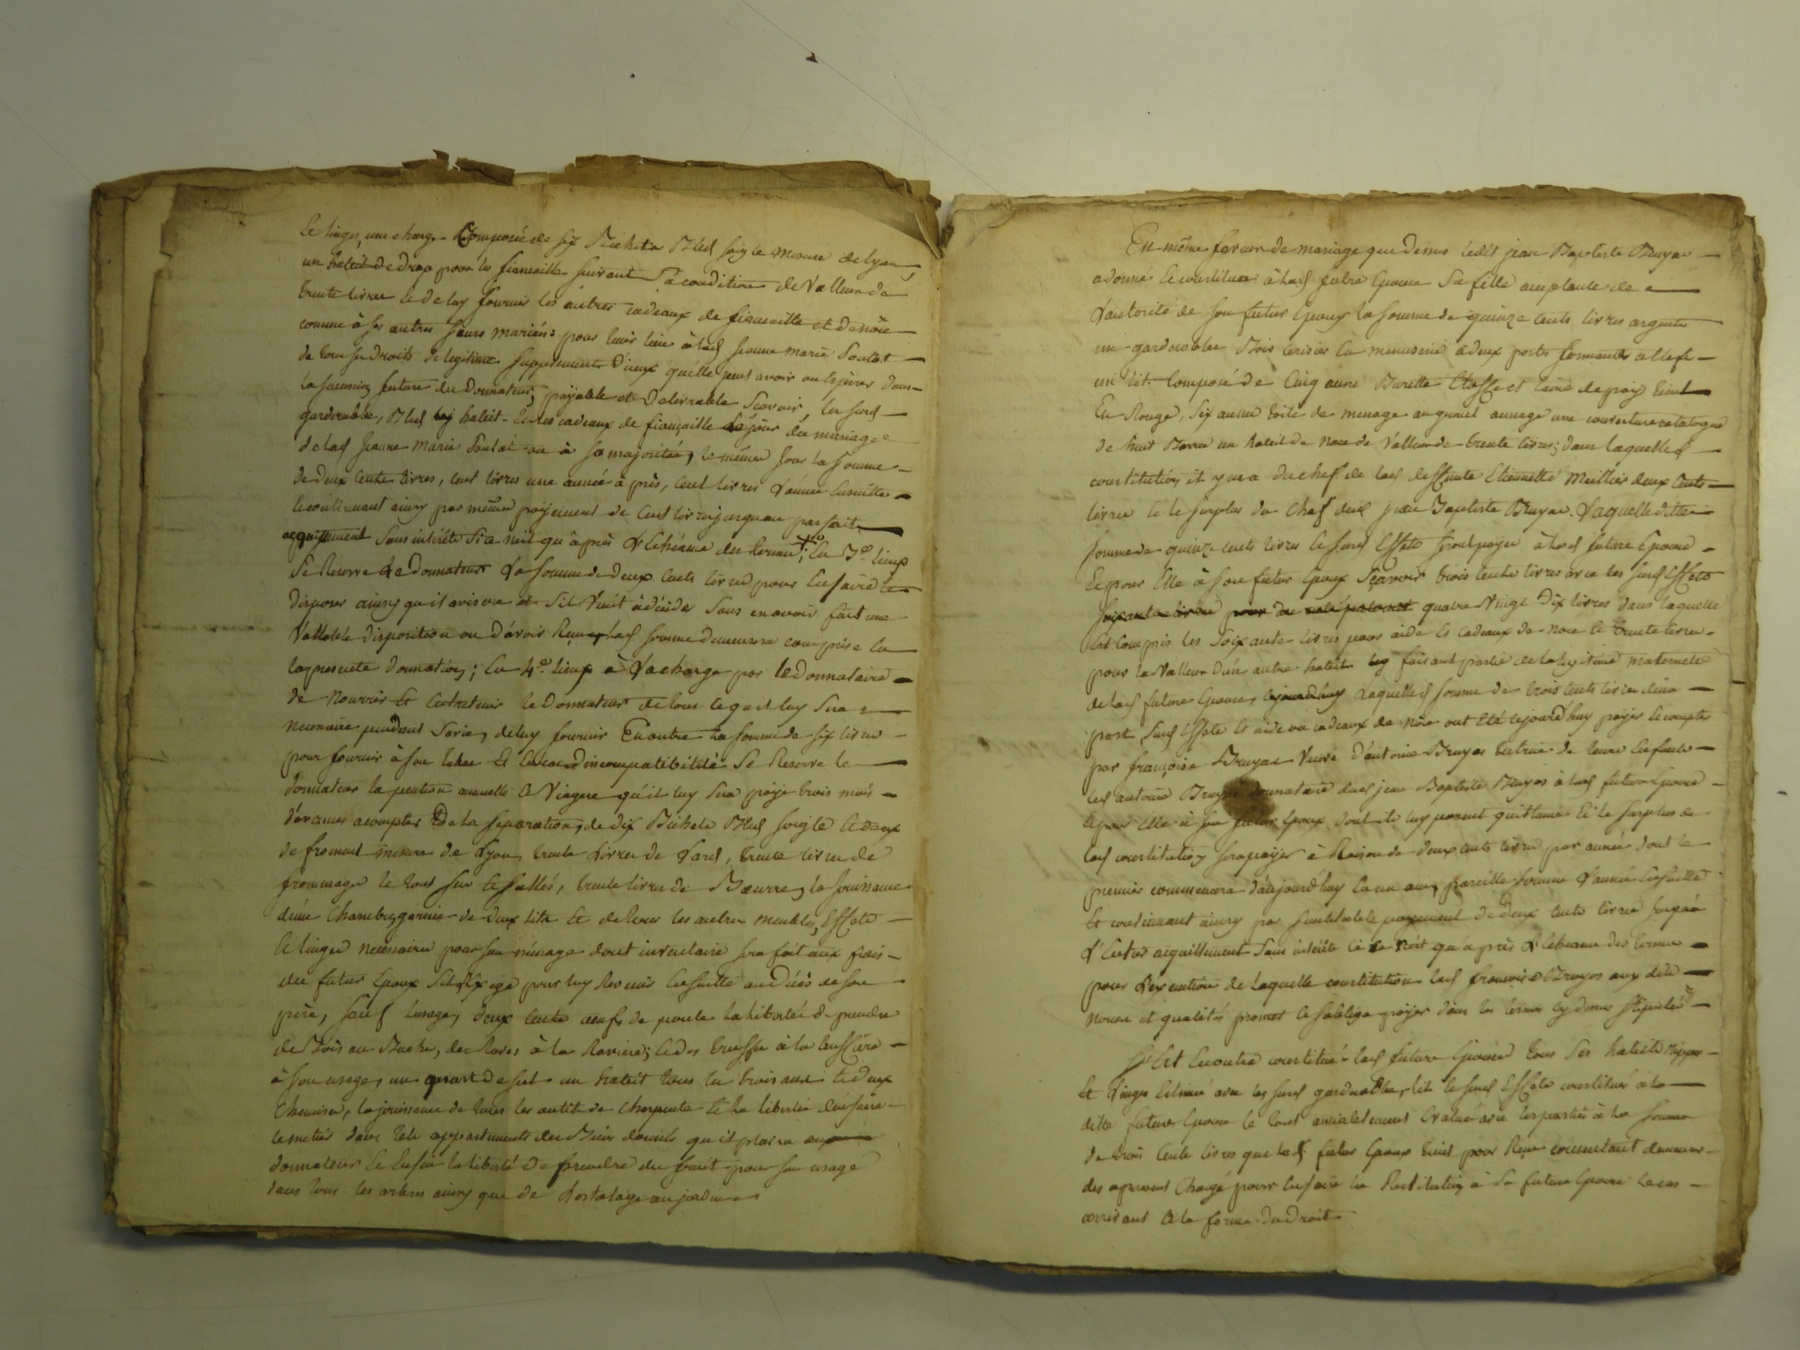 et linges, une charge Composée de six Bichets Bled soigle mesure de lyon,
un habit de drap pour les fiancaille suivant sa condition de Valleur de
trente livres et de luy fournir les autres cadeaux de fiancaille et de nôce
comme à ses autres sœurs mariés: pour tenir lieu à lad jeanne marie Soulat
de tous ses Droits de legitime supplement d'iceux qu'elle peut avoir ou Espérer dans
la succession future du Donnateur, payable et Delivrable Sçavoir, les susd
garderoble, Bled habit et les cadeaux de fiançaille le jour du mariage
de lad jeanne Marie Soulat ou à sa majoritée, le même jour la somme
de deux cents livres, cent livres une année après, cent livres l'année ensuitte
et continuant ainsy par même payement de cent livres jusqu'au parfait
acquittement sans intérêts si ce n'est qu'après l'Echéance des termes; En 3e lieux
Se Reserve le Donnateur La somme de deux cents livres pour En faire et
disposer ainsy qu'il avisera et S'il Vient à déceder Sans en avoir fait une
Vallable disposition ou d'avoir Reçu lad somme demeurera comprise en
la presente donnation; En 4e lieux à La charge par le Donnataire
de Nourrir Et Entretenir le Donnateur de tout ce qu'il luy sera
necessaire pendant sa vie, de luy fournir En outre la somme de six livres
pour fournir à son tabac Et En cas d'incompatibilité Se Reserve le
donnateur la pention annuelle et Viagere qu'il luy sera payé trois mois
d'avances a compter de la separation, de dix Bichets Bled soigle et deux
de froment mesure de Lyon, trente Livres de Lard, trente livres de
frommage le tout sec et sallés, trente livres de Bœurre, la jouissance
d'une Chambre garnie de deux lits Et de tous les autres meubles, Effets
et linges necessaires pour son ménage dont inventaire sera fait aux frais
du futur Epoux S'il l'Exige pour luy Revenir Ensuitte au Décès de son
père, sauf l'usage, deux cents œufs de poule la liberté de prendre
du Bois au Bucher, des Raves à la Raviere,
à son usage, un quart de sel un habit tous les trois ans et deux
Chemises, la jouissance de tous les outils de Charpente et la liberté d'en faire
le metier dans tels appartements des Biens donnés qu'il plaira au
donnateur Et Enfin la liberté de prendre du fruit pour son usage
dans tous les arbres ainsy que de L'ortolage au jardin
En même faveur de mariage que Dessus ledit jean Baptiste Bruyas
a donné et constitué à lad future Epouse Sa fille acceptante de
L'autorité de son futur Epoux la somme de quinze cents livres argent
une garderoble Bois cerisier la menuserie à deux portes fermante à clef
un lit Composé de Cinq aunes Burette Etoffe et laine de pays teint
En Rouge, Six aunes toile de menage une couverture catalogne
de huit Barres un habit de noce de Valleur de trente livres; dans laquelle
constitution il y en a du chef de lad deffunte Etiennette Meillier deux Cents
livres et le surplus du Chef dud jean Baptiste Bruyas. Laquelle ditte
somme de quinze cents livres et susd Effets seront payés à lad future Epouse
Et pour Elle à son futur Epoux Sçavoir trois cents livres avec les susd Effets
quatre Vingt Dix livres dans laquelle
Est Compris les soixante livres pour aide et cadeaux de noce et trente livres
pour la Valleur d'un autre habit faisant partie de la legitime maternelle
de lad future Epouse, laquelle somme de trois cents livres d'une
part, Susd Effets et aide ou cadeaux de nôce ont Eté cejourd'huy payés et comptés
par françoise Bruyas Veuve d'antoine Bruyas tutrice de leurs Enfants
led antoine Bruyas donnataire dud jean Baptiste Bruyas à lad future Epouse
et pour Elle à son futur Epoux dont ils luy passent quittance Et le surplus de
lad constitution sera payés à Raison de deux cents livres par année dont le
premier commencera d'aujourd'huy En un an, pareille somme l'année Ensuitte
Et continuant ainsy par semblable payement de deux cents livres jusqu'à
L'Entier acquittement Sans intérêts si ce n'est qu'après L'Echeance des termes
pour L'Execution de laquelle constitution lad francoise Bruyas aux dits
Noms et qualités promet et s'oblige payer dans les termes cy dessus stipulés
S'Est Enoutre constitué lad future Epouse tous ses habits Nippes
Et Linges Estimé avec les susd garderoble, lit et susd Effets constitués à la
ditte future Epouse le tout amiablement Evalué avec les parties à la somme
de trois Cents livres que led futur Epoux Tient pour Reçu consentant demeurer
des apresent Chargé pour En faire la Restitution à Sa future Epouse le cas
arrivant à la forme du Droit